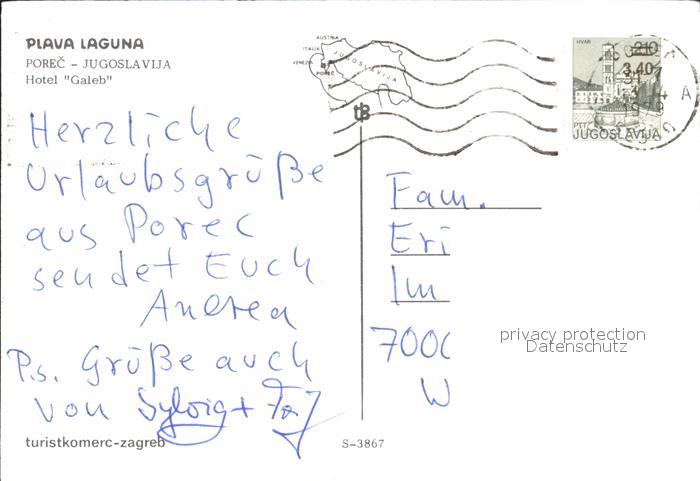 PLAVA LAGUNA
POREČ – JUGOSLAVIJA
Hotel "Galeb"
AUSTRIA
ITALIA
VENEZIA
POREČ
JUGOSLAVIJA
HVAR
2,10
3,40
1979
A
PTT
JUGOSLAVIJA
tz
Herzliche
Urlaubsgrüße
aus Porec
sendet Euch
Andrea
P.s. Grüße auch
von Sylvia +
Fam.
Eri
Im
7000
W
privacy protection
Datenschutz
turistkomerc-zagreb
S-3867